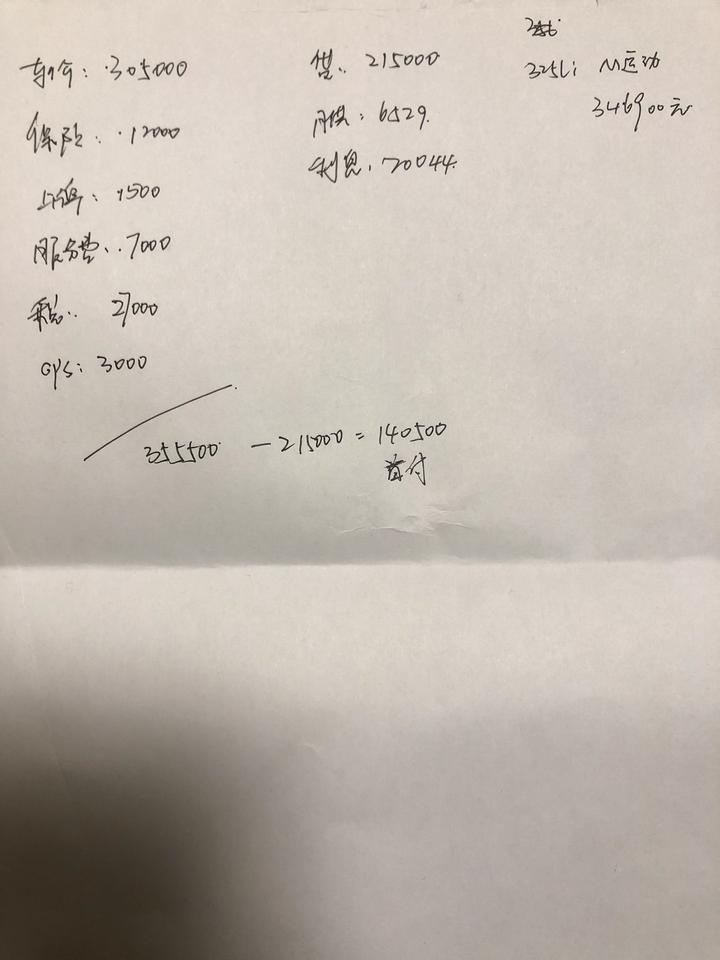 325Li M运动
346900元
车价: 305000
保险: 12000
上牌: 1500
服务费: 7000
税: 27000
GPS: 3000
贷: 215000
月供: 6529.
利息: 20044.
355500 - 215000 = 140500
首付